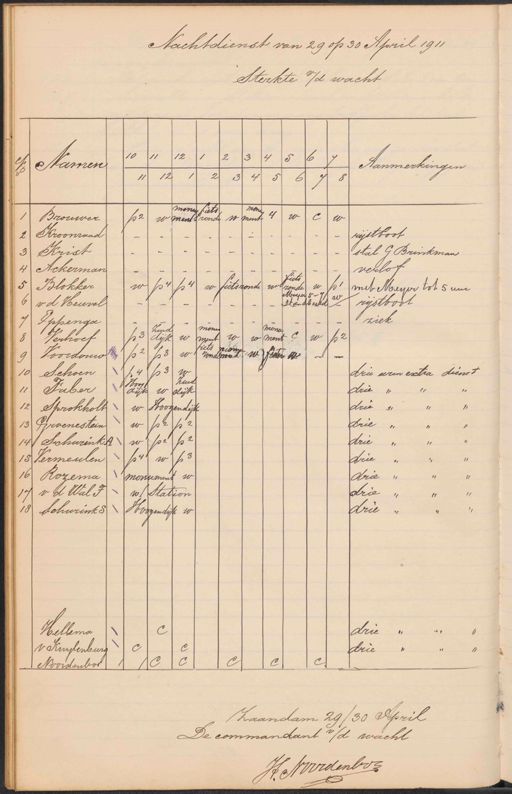 Nachtdienst van 29 op 30 April 1911
Sterkte v/d wacht
Namen 10 11 12 1 2 3 4 5 6 7 Aanmerkingen
11 12 1 2 3 4 5 6 7 8
1 Brouwer p2 w monument fietsronde w monument 4 w c w
2 Kroonraad - - - - - - - - - - rijstboot
3 Krist - - - - - - - - - - stal G Brinkman
4 Ackerman - - - - - - - - - - verlof
5 Blokker w p4 p4 w fietsronde w fietsronde w p1 met Meyer tot 5 uur
6 v d Heuvel - - - - - - - w rijstboot
7 Eppenga - - - - - - - - - - ziek
8 Verhoef p3 Hgdijk w monument w w monument c w p2
9 p2 p3 w w - -
10 Schoen p4 p3 w drie uren extra dienst
11 Faber Hoogdijk w dijk drie " " "
12 Sprokholt w Hoogendijk drie " " "
13 Groenestein w p2 p2 drie " " "
14 Schurink A w p2 p2 drie " " "
15 Vermeulen p4 w p3 drie " " "
16 Rozema monument w drie " " "
17 v d Wal F w Station drie " " "
18 Schurink S Hoogendijk w drie " " "
Hellema c drie " " "
v Kuylenburg c c drie " " "
Noordenbos c c c c c
Zaandam 29/30 April
De commandant v/d wacht
H. Noordenbos